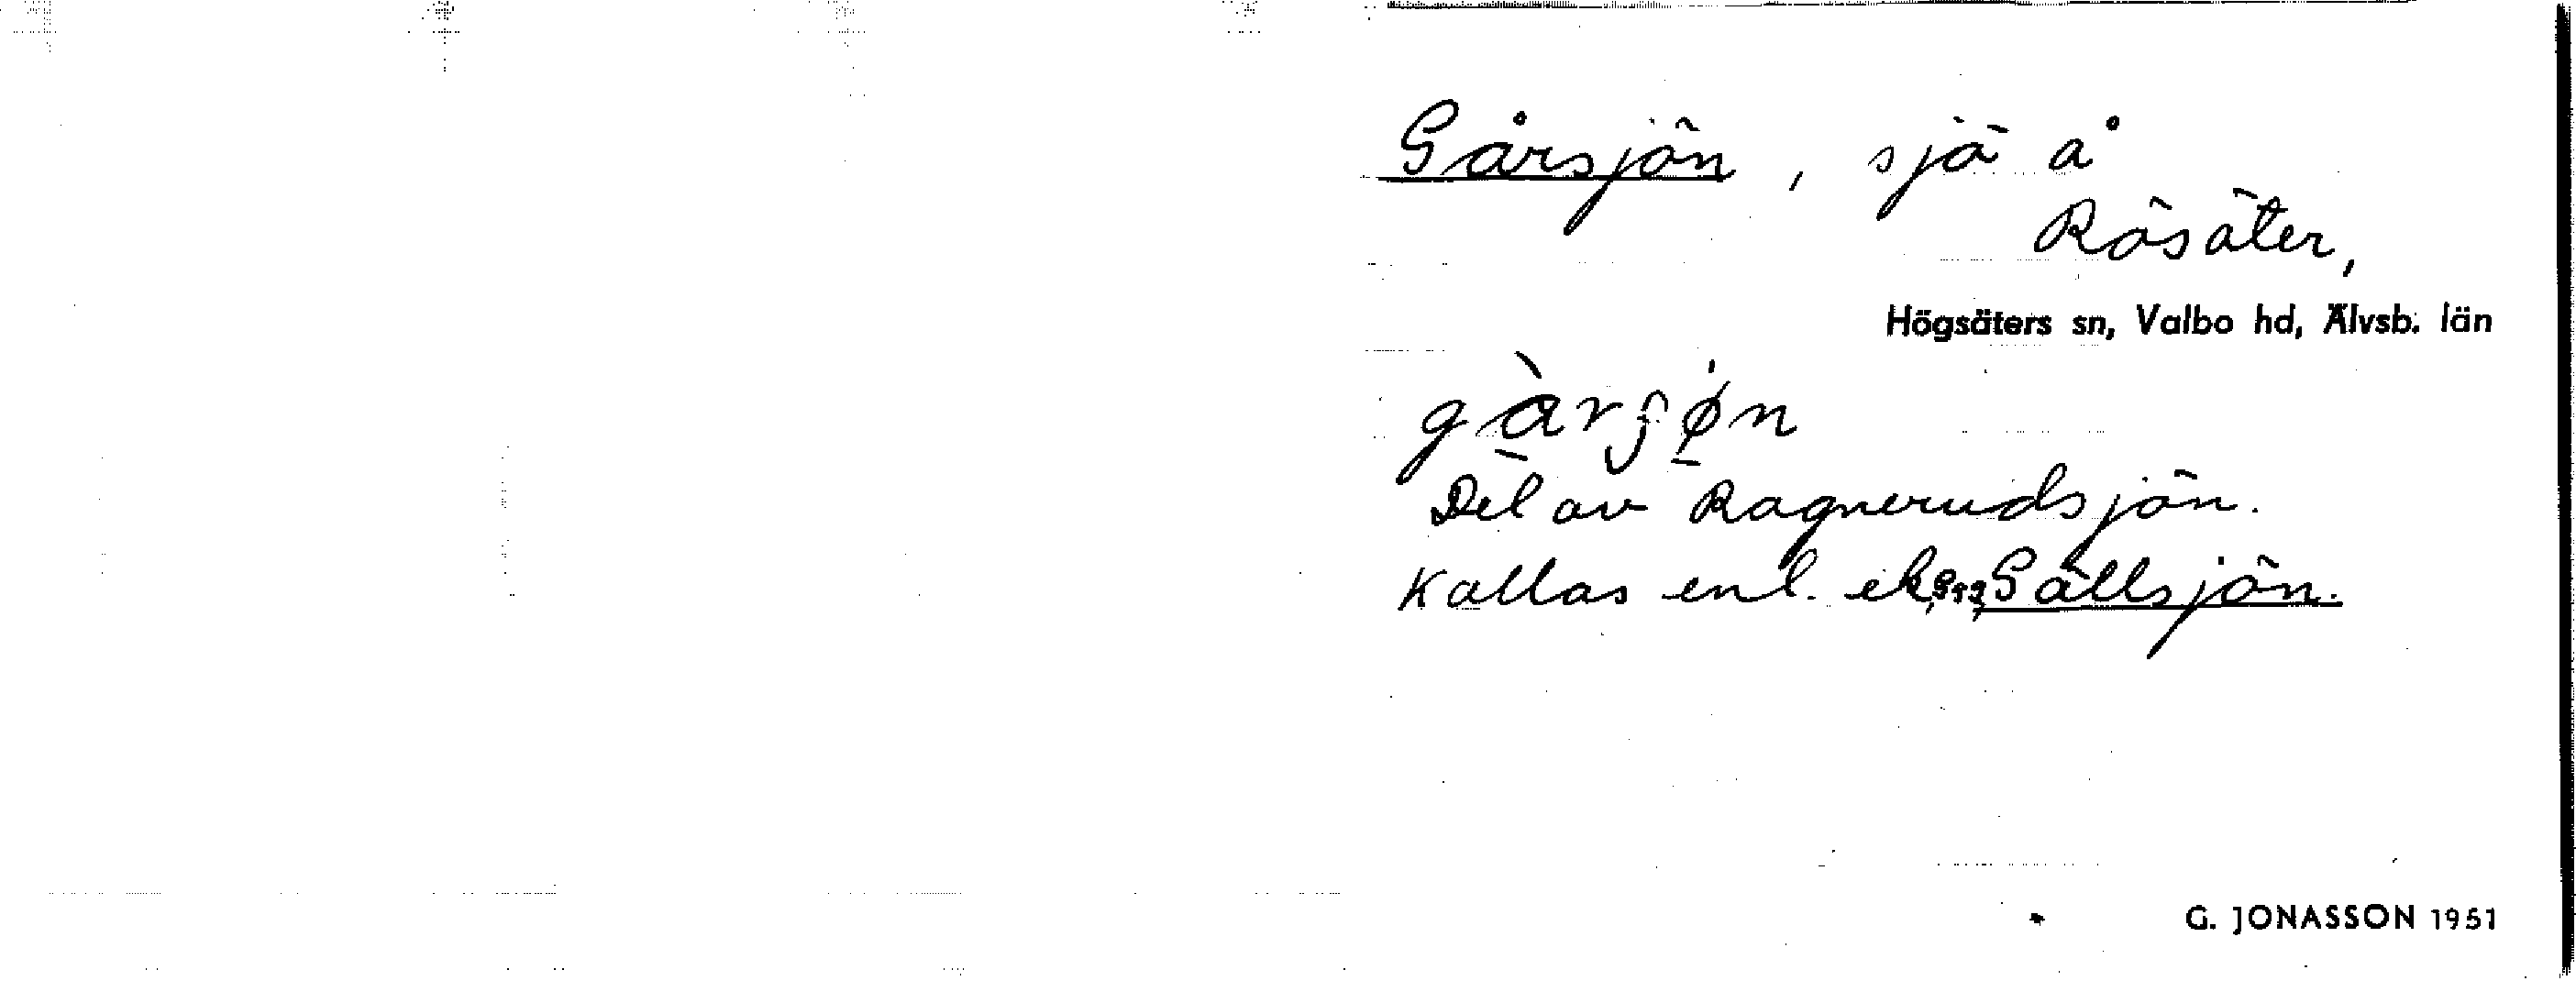 Gårsjön, sjö å
Rösäter,
Högsäters sn, Valbo hd, Älvsb. län
Del av Ragnerudsjön.
Kallas enl. ek. Gällsjön.
G. JONASSON 1951